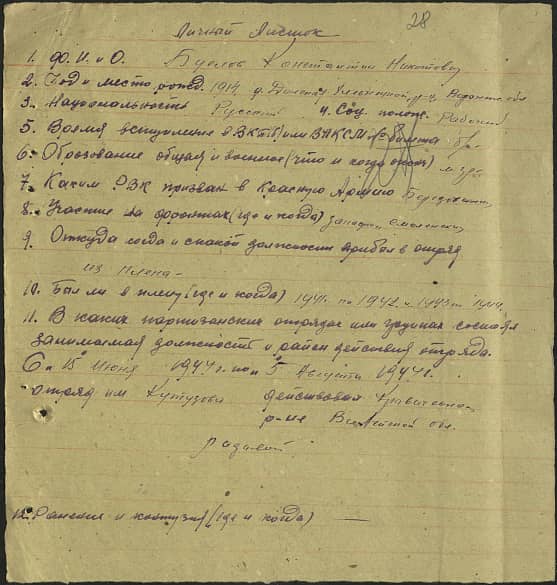 28
Личный Листок
1. Ф.И. и О. Константин Никитович
2. Год и место рожд. 1914 д. р-н обл
3. Национальность Русский 4. Соц. полож. Рабочий
5. Время вступления в ВКП(б) или ВЛКСМ № билета б/п
6. Образование общая и военное (что и когда окон)
7. Каким РВК призван в Красную Армию
8. Участие на фронтах (где и когда) западн
9. Откуда когда и с какой должности прибыл в отряд
из плена -
10. Был ли в плену (где и когда) 1941 по 1942 и 1943 1944
11. В каких партизанских отрядах или уединах состоял
занимаемая должность и район действия отряда.
С 15 Июня 1944 г. по 5 Августа 1944 г.
отряд им Кутузова действовал
р-не обл.
рядовой
12. Ранение и контузия (где и когда) —